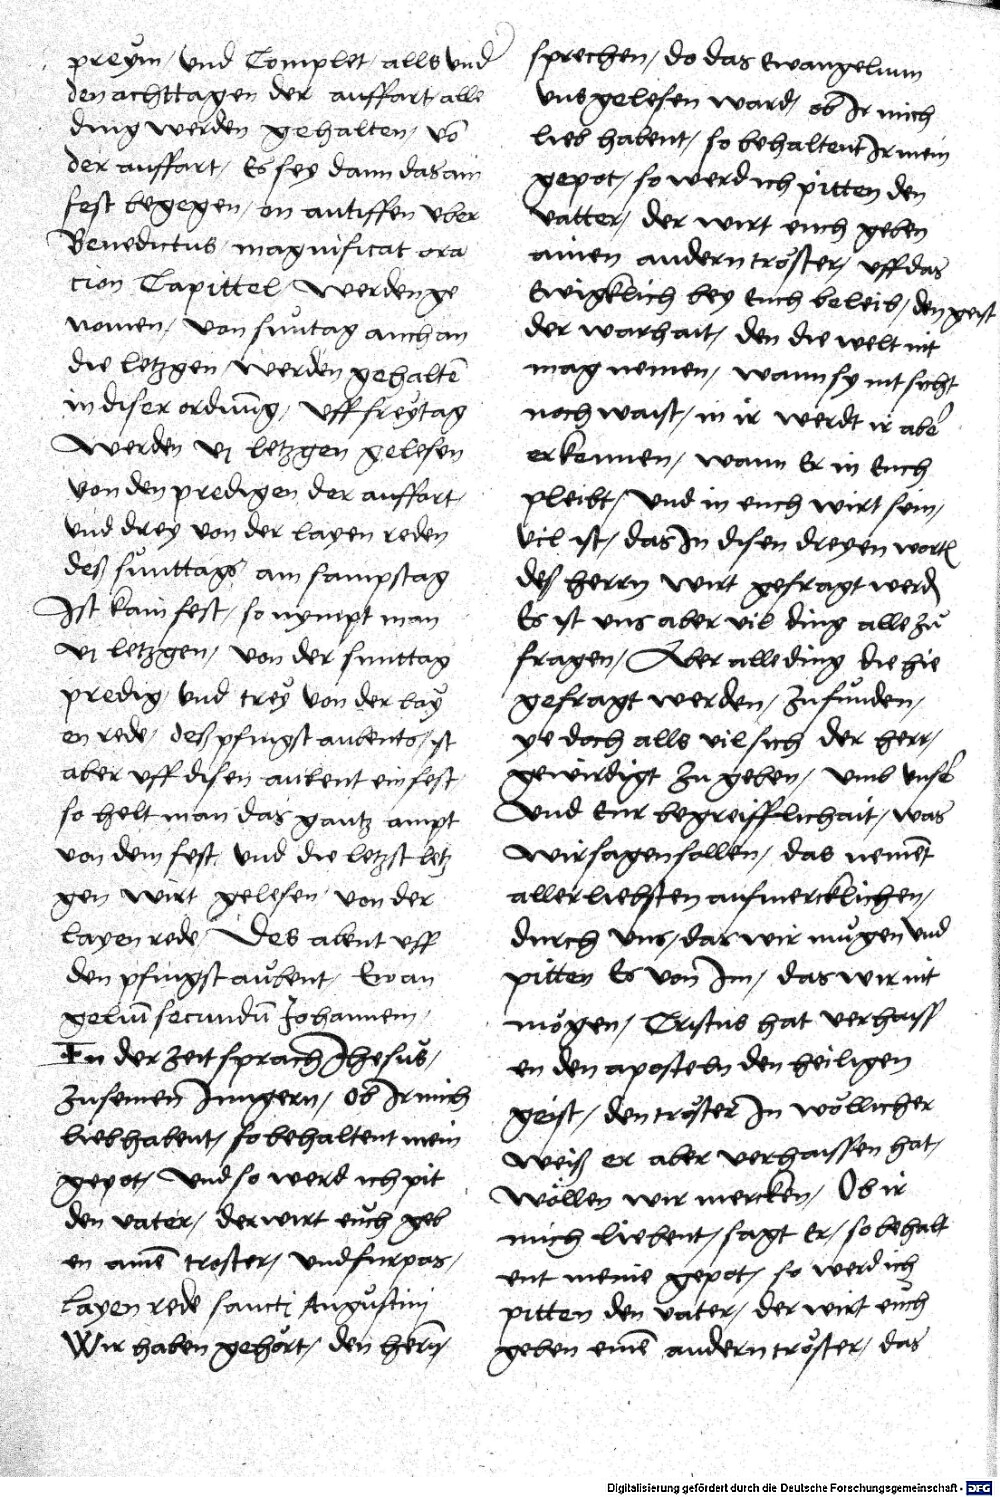 preym / und Complet / alls und
den achttagen der auffart alle
ding werden gehalten / vo̅
der auffart / Es sey dann das ain
fest begegen / on antiffen vber
Benedictus magnificat ora
cion Capittel / werden ge
nomen / von sůntag auch an
die letzgen / werden gehalte̅
in diser ordnu̅g / Uff freytag
werden vj letzgen gelesen
von den predigen der auffart /
vnd drey von der layen reden
deß sůnttags am sampstag
Ist kain fest / so nympt man
vj letzgen / von der sunttag
predig / vnd trey von der lay
en rede / deß pfingst aubents / ist
aber vff disen aubent ein fest
so helt man das gantz ampt
von dem fest vnd die letzst letz
gen wirt gelesen von der
layen rede / Des abent vff
den pfingst aůbent / Ewan
geliu̅ secundu̅ Johannem /
In der zeit sprach Jhesus /
zu seinen Jungern / Ob Ir mich
lieb habent / so behaltent mein
gepot / Vnd so werd ich pit
den vater / der wirt eůch geb
en aine̅ troster / vnd furpas /
layen rede sancti Augustini
Wir haben gehört / den hern̅ /
sprechen / do das ewangelium
vns gelesen ward / ob Ir mich
lieb habent / so behaltent Ir mein
gepot / so werd ich pitten den
vatter / der wirt euch geben
ainen andern tröster / vff das
Ewigklich bey Euch beleib / den geist
der warhait / den die welt nit
mag nemen / wann sy nit sicht
noch waist / in ir werdt ir aber
erkennen / wann Er in Euch
pleibt / vnd in euch wirt sein /
Vil ist / das In disen dreyen wort
deß herrn wirt gefragt werd
Es ist vns aber vil ding alle zů
fragen / Aber alle ding die hie
gefragt werden / zu fůnden /
ye doch alls vil sich der herr /
gewirdigt zu geben / vmb vnser
Vnd Eur begreifflichait / was
wir sagen sollen / das neme̅t
aller liebsten aufmercklichen /
durch vns / das wir můgen vnd
pitten Es von Im / das wir nit
mögen / Cristus hat verhaiss
en den aposteln den heiligen
geist / den tröster In wöllicher
weiß er aber verhaissen hat /
wöllen wir mercken / Ob ir
mich liebent / sagt Er / so behalt
ent meine gepot / so werd ich
pitten den vater / der wirt euch
geben eine̅ andern tröster / das
Digitalisierung gefördert durch die Deutsche Forschungsgemeinschaft - DFG